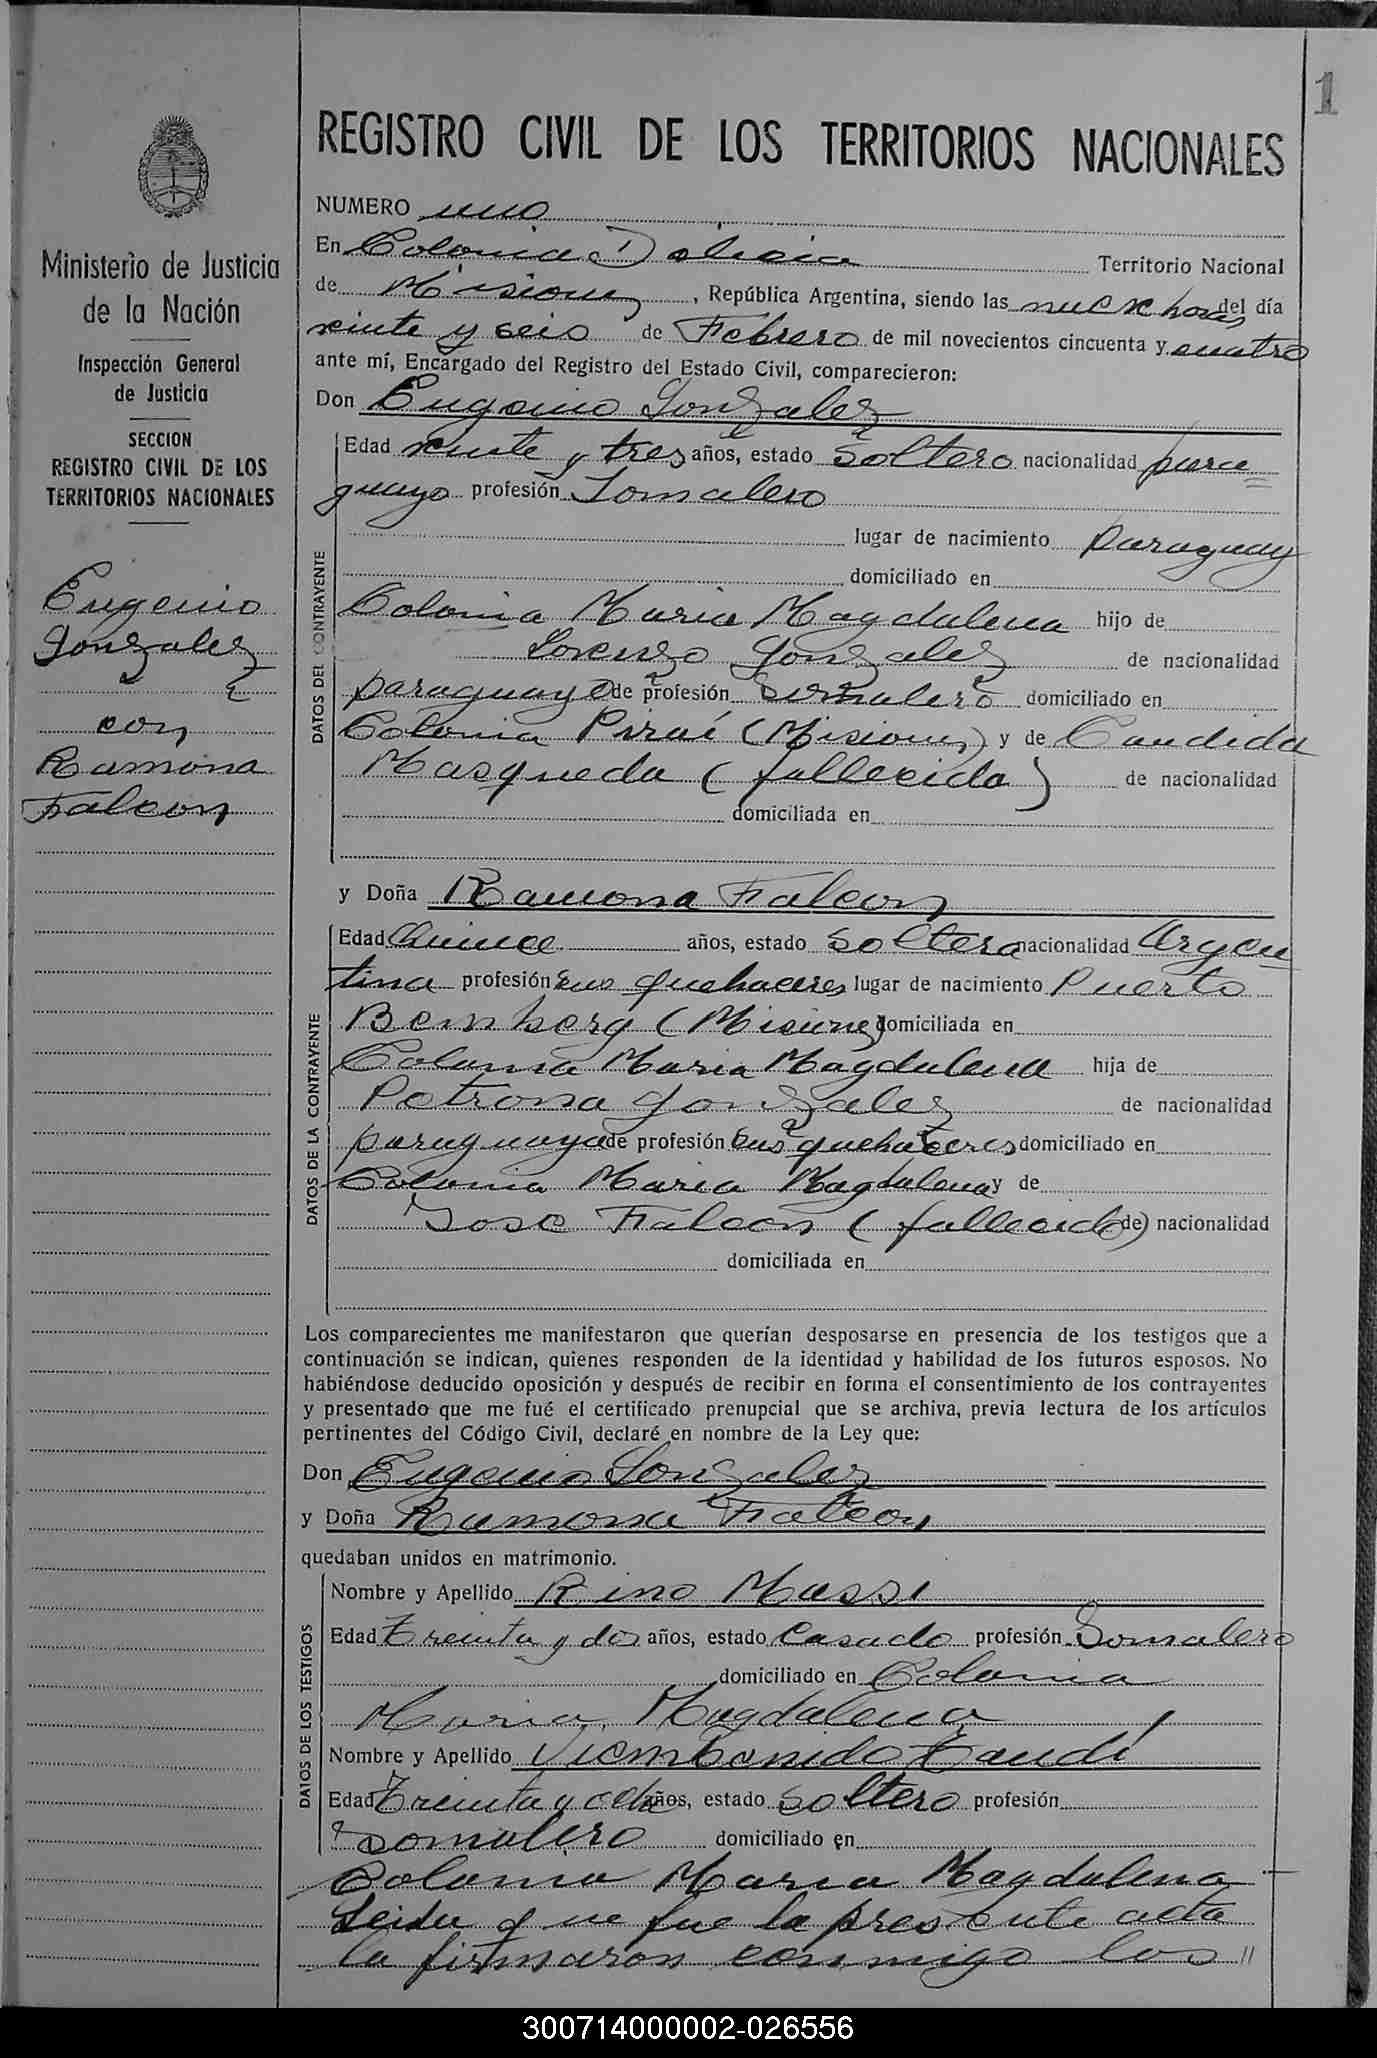 1
REGISTRO CIVIL DE LOS TERRITORIOS NACIONALES
Ministerio de Justicia
de la Nación
Inspección General
de Justicia
SECCION
REGISTRO CIVIL DE LOS
TERRITORIOS NACIONALES
Eugenio
Gonzalez
con
Ramona
Falcon
NUMERO uno
En Colonia Delicia Territorio Nacional
de Misiones, República Argentina, siendo las nueve horas del día
veinte y seis de Febrero de mil novecientos cincuenta y cuatro
ante mí, Encargado del Registro del Estado Civil, comparecieron:
Don Eugenio Gonzalez
DATOS DEL CONTRAYENTE
Edad veinte y tres años, estado Soltero nacionalidad para
guayo profesión Jornalero
lugar de nacimiento Paraguay
domiciliado en
Colonia Maria Magdalena hijo de
Lorenzo Gonzalez de nacionalidad
paraguayo de profesión Jornalero domiciliado en
Colonia Piraí (Misiones) y de Candida
Masqueda (fallecida) de nacionalidad
domiciliada en
y Doña Ramona Falcon
DATOS DE LA CONTRAYENTE
Edad Quince años, estado Soltera nacionalidad Argen
tina profesión sus quehaceres lugar de nacimiento Puerto
Bemberg (Misiones) domiciliada en
Colonia Maria Magdalena hija de
Petrona Gonzalez de nacionalidad
paraguaya de profesión sus quehaceres domiciliado en
Colonia Maria Magdalena y de
Jose Falcon (fallecido) de nacionalidad
domiciliada en
Los comparecientes me manifestaron que querían desposarse en presencia de los testigos que a
continuación se indican, quienes responden de la identidad y habilidad de los futuros esposos. No
habiéndose deducido oposición y después de recibir en forma el consentimiento de los contrayentes
y presentado que me fué el certificado prenupcial que se archiva, previa lectura de los artículos
pertinentes del Código Civil, declaré en nombre de la Ley que:
Don Eugenio Gonzalez
y Doña Ramona Falcon
quedaban unidos en matrimonio.
DATOS DE LOS TESTIGOS
Nombre y Apellido Rino Massi
Edad Treinta y dos años, estado Casado profesión Jornalero
domiciliado en Colonia
Maria Magdalena
Nombre y Apellido
Edad Treinta y ocho años, estado soltero profesión
Jornalero domiciliado en
Colonia Maria Magdalena
Leida que fue la presente acta
la firmaron conmigo los //
300714000002-026556